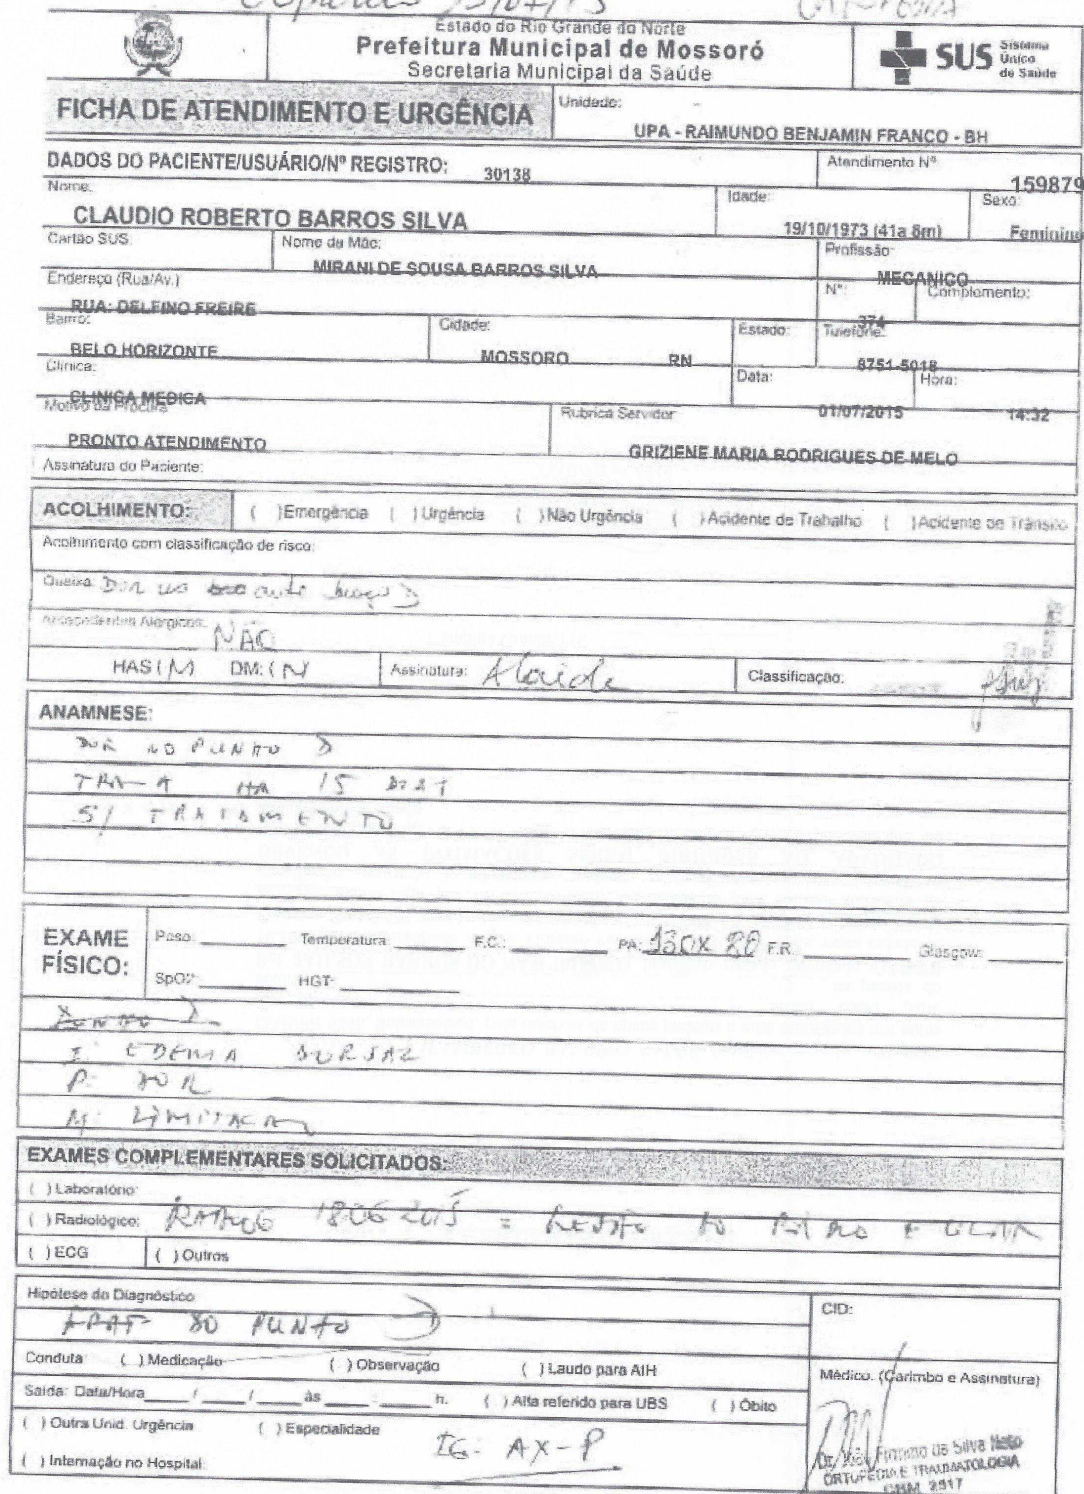 Estado do Rio Grande do Norte
Prefeitura Municipal de Mossoró
Secretaria Municipal da Saúde
SUS Sistema Único de Saúde
FICHA DE ATENDIMENTO E URGÊNCIA
Unidade:
UPA - RAIMUNDO BENJAMIN FRANCO - BH
DADOS DO PACIENTE/USUÁRIO/Nº REGISTRO: 30138
Atendimento Nº
159879
Nome:
CLAUDIO ROBERTO BARROS SILVA
Idade:
19/10/1973 (41a 8m)
Sexo:
Feminino
Cartão SUS:
Nome da Mãe:
MIRANI DE SOUSA BARROS SILVA
Profissão:
MECANICO
Endereço (Rua/Av.)
RUA: DELFINO FREIRE
Nº:
374
Complemento:
Bairro:
BELO HORIZONTE
Cidade:
MOSSORO RN
Estado:
Telefone:
8751-5018
Clínica:
CLINICA MEDICA
Data:
01/07/2015
Hora:
14:32
Motivo da Procura
PRONTO ATENDIMENTO
Rubrica Servidor
GRIZIENE MARIA RODRIGUES DE MELO
Assinatura do Paciente:
ACOLHIMENTO: ( )Emergência ( )Urgência ( )Não Urgência ( )Acidente de Trabalho ( )Acidente de Trânsito
Acolhimento com classificação de risco:
Queixa: Dor no ante braço D
Antecedentes Alérgicos: NÃO
HAS (N) DM: (N) Assinatura: Alaide Classificação:
ANAMNESE:
DOR NO PUNHO D
HA 15 DIAS
S/ TRATAMENTO
EXAME FÍSICO:
Peso: Temperatura: F.C.: PA: 130X80 F.R. Glasgow:
SpO2: HGT:
PUNHO D
I: EDEMA DORSAL
P: DOR
M: LIMITACAO
EXAMES COMPLEMENTARES SOLICITADOS:
( ) Laboratório:
( ) Radiológico: 18.06.2015 =
( ) ECG ( ) Outros
Hipótese do Diagnóstico
DO PUNHO D
CID:
Conduta: ( ) Medicação ( ) Observação ( ) Laudo para AIH
Médico: (Carimbo e Assinatura)
Saída: Data/Hora / / às : h. ( ) Alta referido para UBS ( ) Óbito
( ) Outra Unid. Urgência ( ) Especialidade
IG: AX-P
( ) Internação no Hospital:
da Silva Neto
ORTOPEDIA E TRAUMATOLOGIA
CRM 2917